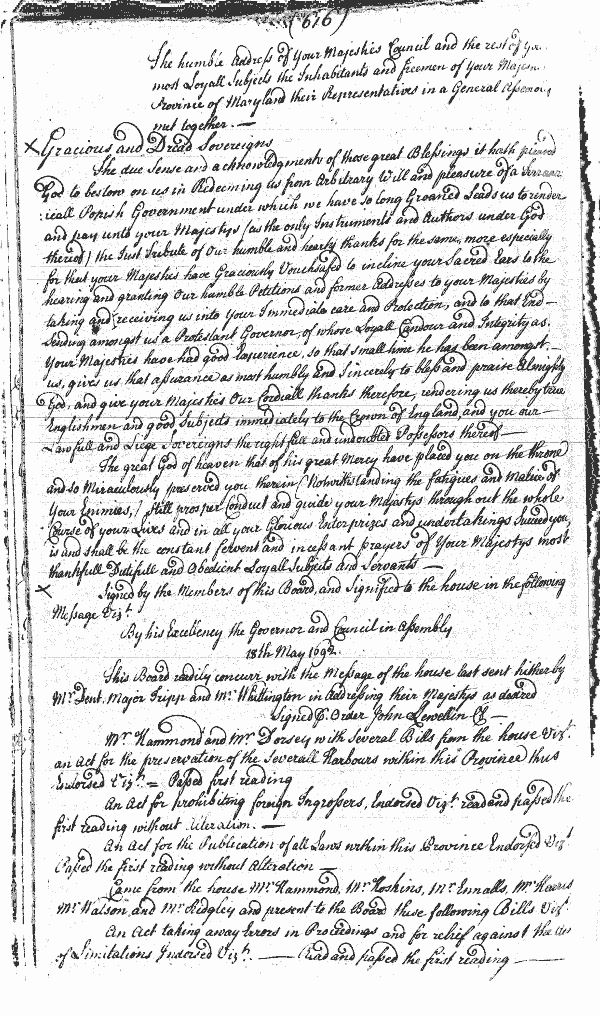 (616)
The humble Address of Your Majesties Council and the rest of
most Loyall Subjects the Inhabitants and freemen of Your
Province of Maryland their Representatives in a General
met together. —
Gracious and Dread Sovereigns
The due Sense and acknowledgments of those great Blessings it hath pleased
God to bestow on us in Redeeming us from Arbitrary Will and pleasure of a
Popish Government under which we have so long Groaned Leads us to render
and pay unto your Majestys (as the only Instruments and Authors under God
thereof) the Just Tribute of Our humble and hearty thanks for the same, more especially
for that your Majesties have Graciously Vouchsafed to incline your Sacred Ears to the
hearing and granting Our humble Petitions and former Addresses to your Majesties by
taking and receiving us into Your Immediate care and Protection, and to that End —
Sending amongst us a Protestant Governor, of whose Loyall Candour and Integrity as
Your Majesties have had good Experience, so that small time he has been amongst —
us, gives us that assurance as most humbly and Sincerely to bless and praise Almighty
God, and give your Majesties Our Cordiall thanks therefore, rendering us thereby
Englishmen and good Subjects immediately to the Crown of England, and you our —
Lawfull and Liege Sovereigns the rightfull and undoubted Possessors thereof —
The great God of heaven that of his great Mercy have placed you on the throne
and so Miraculously preserved you therein (Notwithstanding the fatigues and Malice of
Your Enemies,) still prosper Conduct and guide your Majestys through out the whole
Course of your Lives and in all your Glorious Enterprizes and undertakings Succeed you
is and shall be the constant fervent and incessant prayers of Your Majestys most
thankfull Dutifull and Obedient Loyall Subjects and Servants —
Signed by the Members of this Board, and Signified to the house in the following
Message Vizt.
By his Excellency the Governor and Council in Assembly
18th May 1692.
This Board readily concurr with the Message of the house last sent hither by
Mr. Dent, Major Tripp and Mr. Whittington in Addressing their Majestys as desired
Signed P. Order John Llewellin Cl —
Mr. Hammond and Mr. Dorsey with Several Bills from the house Vizt.
an Act for the preservation of the Severall Harbours within this Province thus
Endorsed Vizt. = Passed first reading
An Act for prohibiting foreign Ingrossers, Endorsed Vizt. read and passed the
first reading without Alteration. —
An Act for the Publication of all Laws within this Province Endorsed Vizt
Passed the first reading without Alteration —
Came from the house Mr. Hammond, Mr. Hoskins, Mr. Ennalls, Mr. Harris
Mr. Watson and Mr. Ridgley and present to the Board these following Bills Vizt.
An Act taking away Errors in Proceedings and for relief against the
of Limitations Endorsed Vizt. — Read and passed the first reading —